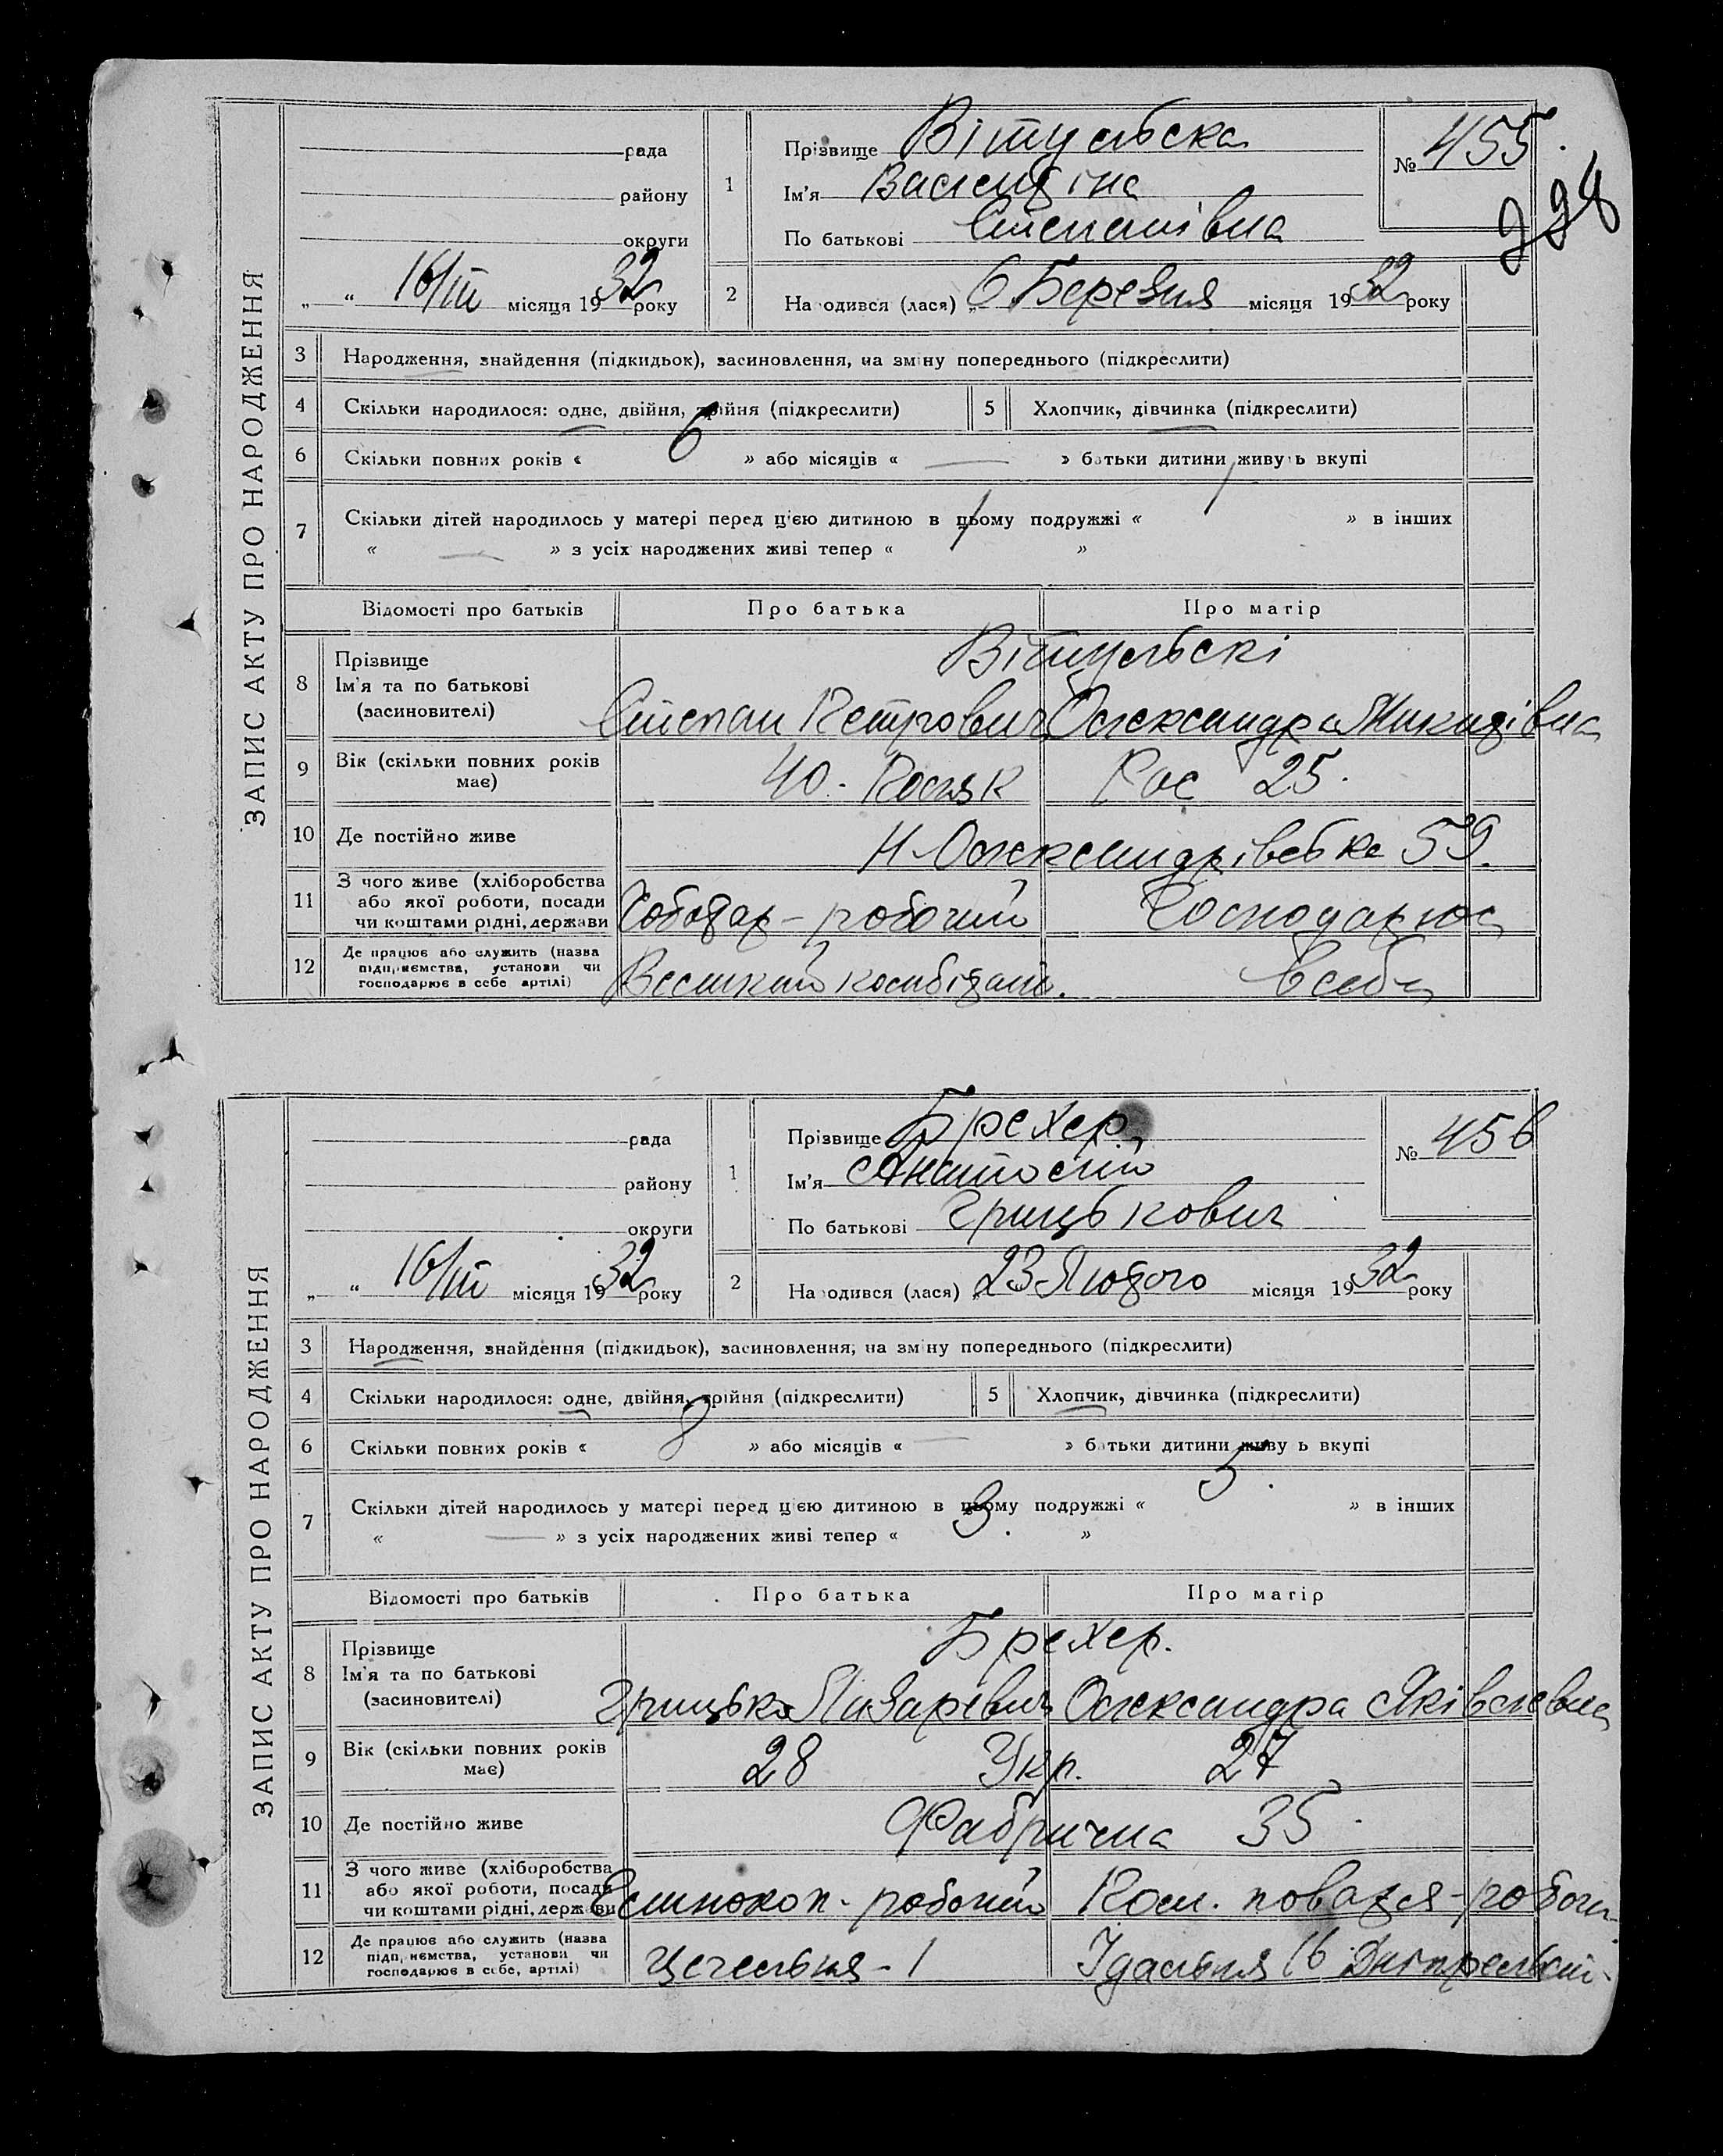 ЗАПИС АКТУ ПРО НАРОДЖЕННЯ
рада
району
округи
„ “ 16/III місяця 1932 року
1 Прізвище Вітульська
Ім'я Валентіна
По батькові Степанівна
№ 455.
228
2 На одився (лася) „ 6 Березня місяця 1932 року
3 Народження, знайдення (підкидьок), засиновлення, на зміну попереднього (підкреслити)
4 Скільки народилося: одне, двійня, трійня (підкреслити) 5 Хлопчик, дівчинка (підкреслити)
6 Скільки повних років « 6 » або місяців « — » батьки дитини живуть вкупі
7 Скільки дітей народилось у матері перед цією дитиною в цьому подружжі « 1 » в інших
« — » з усіх народжених живі тепер « 1 »
Відомості про батьків Про батька Про матір
8 Прізвище Вітульскі
Ім'я та по батькові
(засиновителі) Степан Петрович Олександра Никидівна
9 Вік (скільки повних років має) 40. Поляк Рос 25.
10 Де постійно живе Н-Олександрівська 59.
11 З чого живе (хліборобства або якої роботи, посади чи коштами рідні, держави Чоботар - робочий Господарює
12 Де працює або служить (назва підприємства, установи чи господарює в себе артілі) Великий комбінат. В себе
ЗАПИС АКТУ ПРО НАРОДЖЕННЯ
рада
району
округи
„ “ 16/III місяця 1932 року
1 Прізвище Брехер
Ім'я Анатолій
По батькові Грицькович
№ 456
2 На одився (лася) „ 23 Лютого місяця 1932 року
3 Народження, знайдення (підкидьок), засиновлення, на зміну попереднього (підкреслити)
4 Скільки народилося: одне, двійня, трійня (підкреслити) 5 Хлопчик, дівчинка (підкреслити)
6 Скільки повних років « 8 » або місяців « — » батьки дитини живуть вкупі
7 Скільки дітей народилось у матері перед цією дитиною в цьому подружжі « 5. » в інших
« — » з усіх народжених живі тепер « 3. »
Відомості про батьків Про батька Про матір
8 Прізвище Брехер.
Ім'я та по батькові
(засиновителі) Грицько Лазаревич Олександра Яківлевна
9 Вік (скільки повних років має) 28 Укр. 27
10 Де постійно живе Фабрична 35.
11 З чого живе (хліборобства або якої роботи, посади чи коштами рідні, держави Глинокоп. робочий Пом. повара - робоч.
12 Де працює або служить (назва підприємства, установи чи господарює в себе, артілі) Цегельня - 1 Їдальня 16